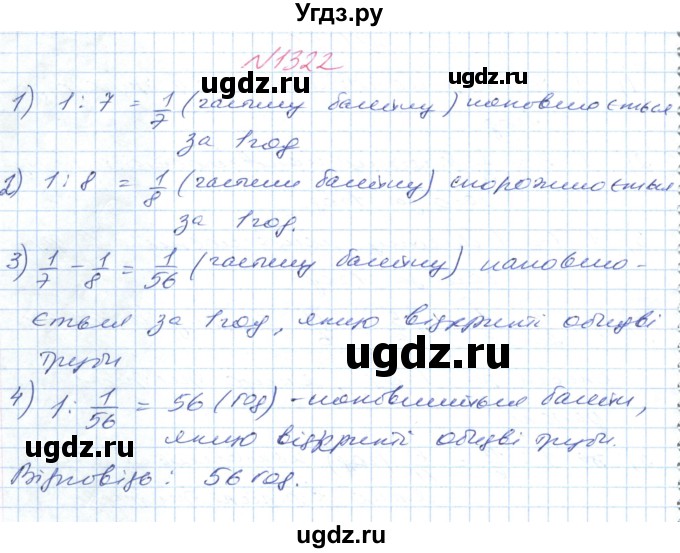 Угдз.ру
№1322
ugdz.ru ugdz.ru
1) 1 : 7 = 1/7 (частину басейну) наповнюється
за 1 год
ugdz.ru
2) 1 : 8 = 1/8 (частини басейну) спорожнюється
за 1 год.
ugdz.ru ugdz.ru
3) 1/7 - 1/8 = 1/56 (частину басейну) наповню-
ється за 1 год, якщо відкриті обидві
труби
ugdz.ru
4) 1 : 1/56 = 56 (год) - наповниться басейн,
якщо відкриті обидві труби.
ugdz.ru ugdz.ru
Відповідь : 56 год.
ugdz.ru